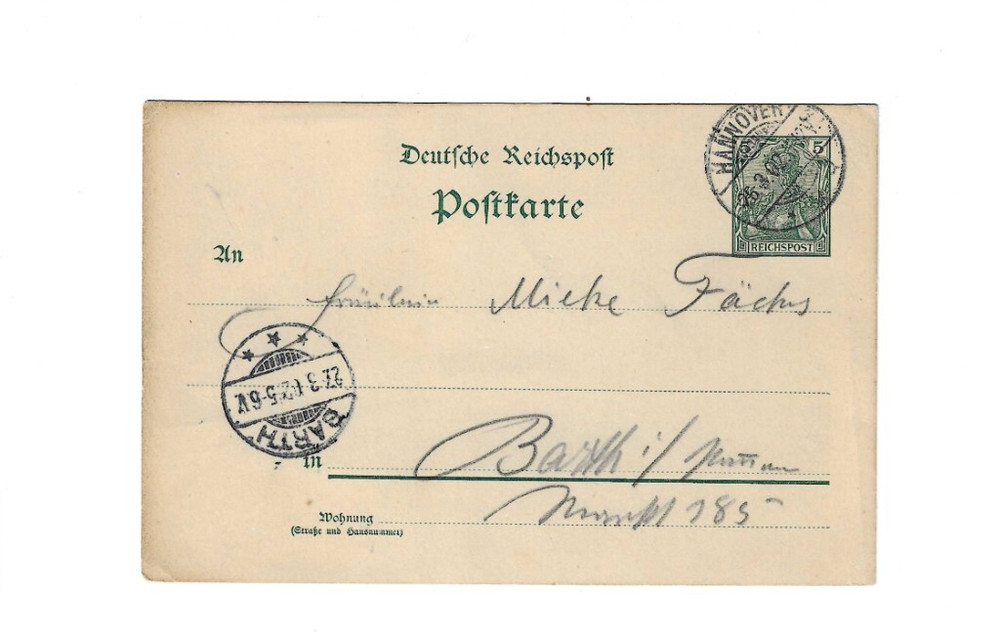 Deutsche Reichspost
Postkarte
HANNOVER
26.3.02
5
REICHSPOST
An
Fräulein Mieke
BARTH
27.3.02.5-6V.
in
Barth i/
Markt 185
Wohnung
(Straße und Hausnummer)